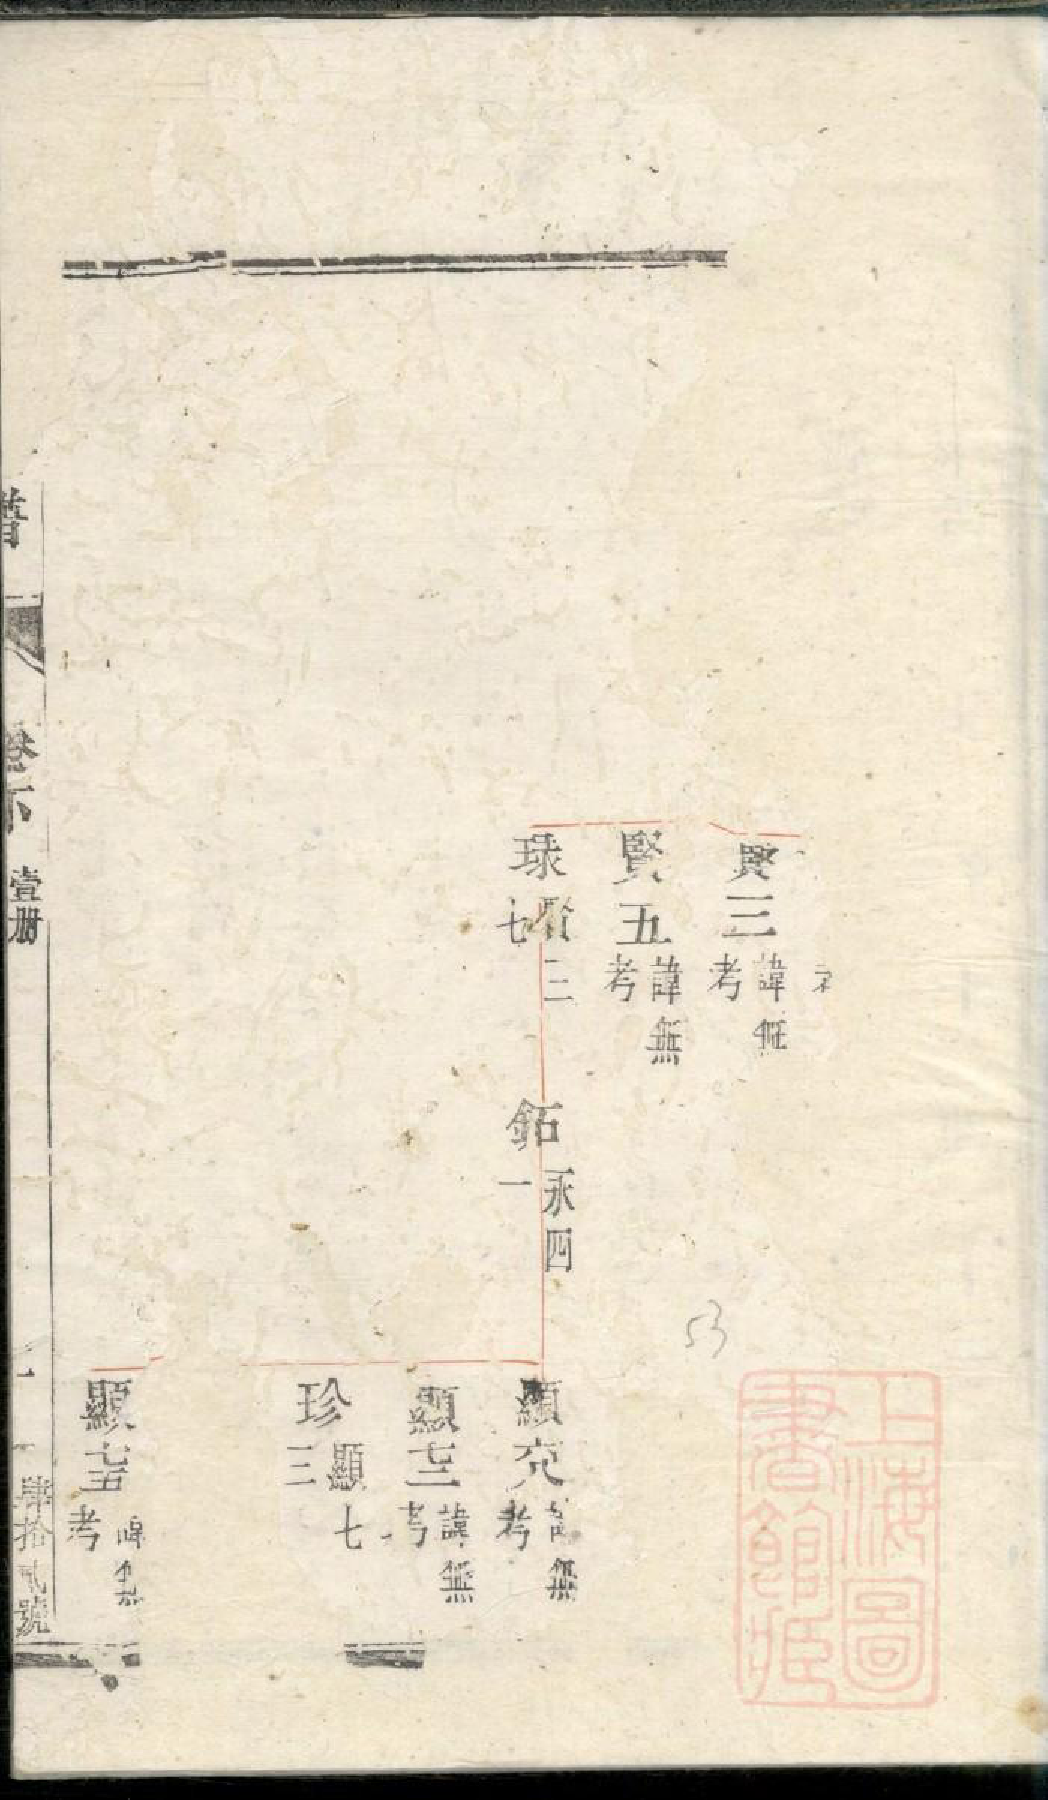 賢三 諱無考
賢五 諱無考
球 賢三七
鉐 永四一
諱無考
顯七三 諱無考
珍 顯七三
顯七五 諱無考
譜
卷下
壹册
肆拾貳號
53
上海圖書館藏